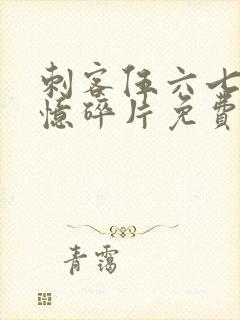 刺客伍六七
憶碎片免費
青靄